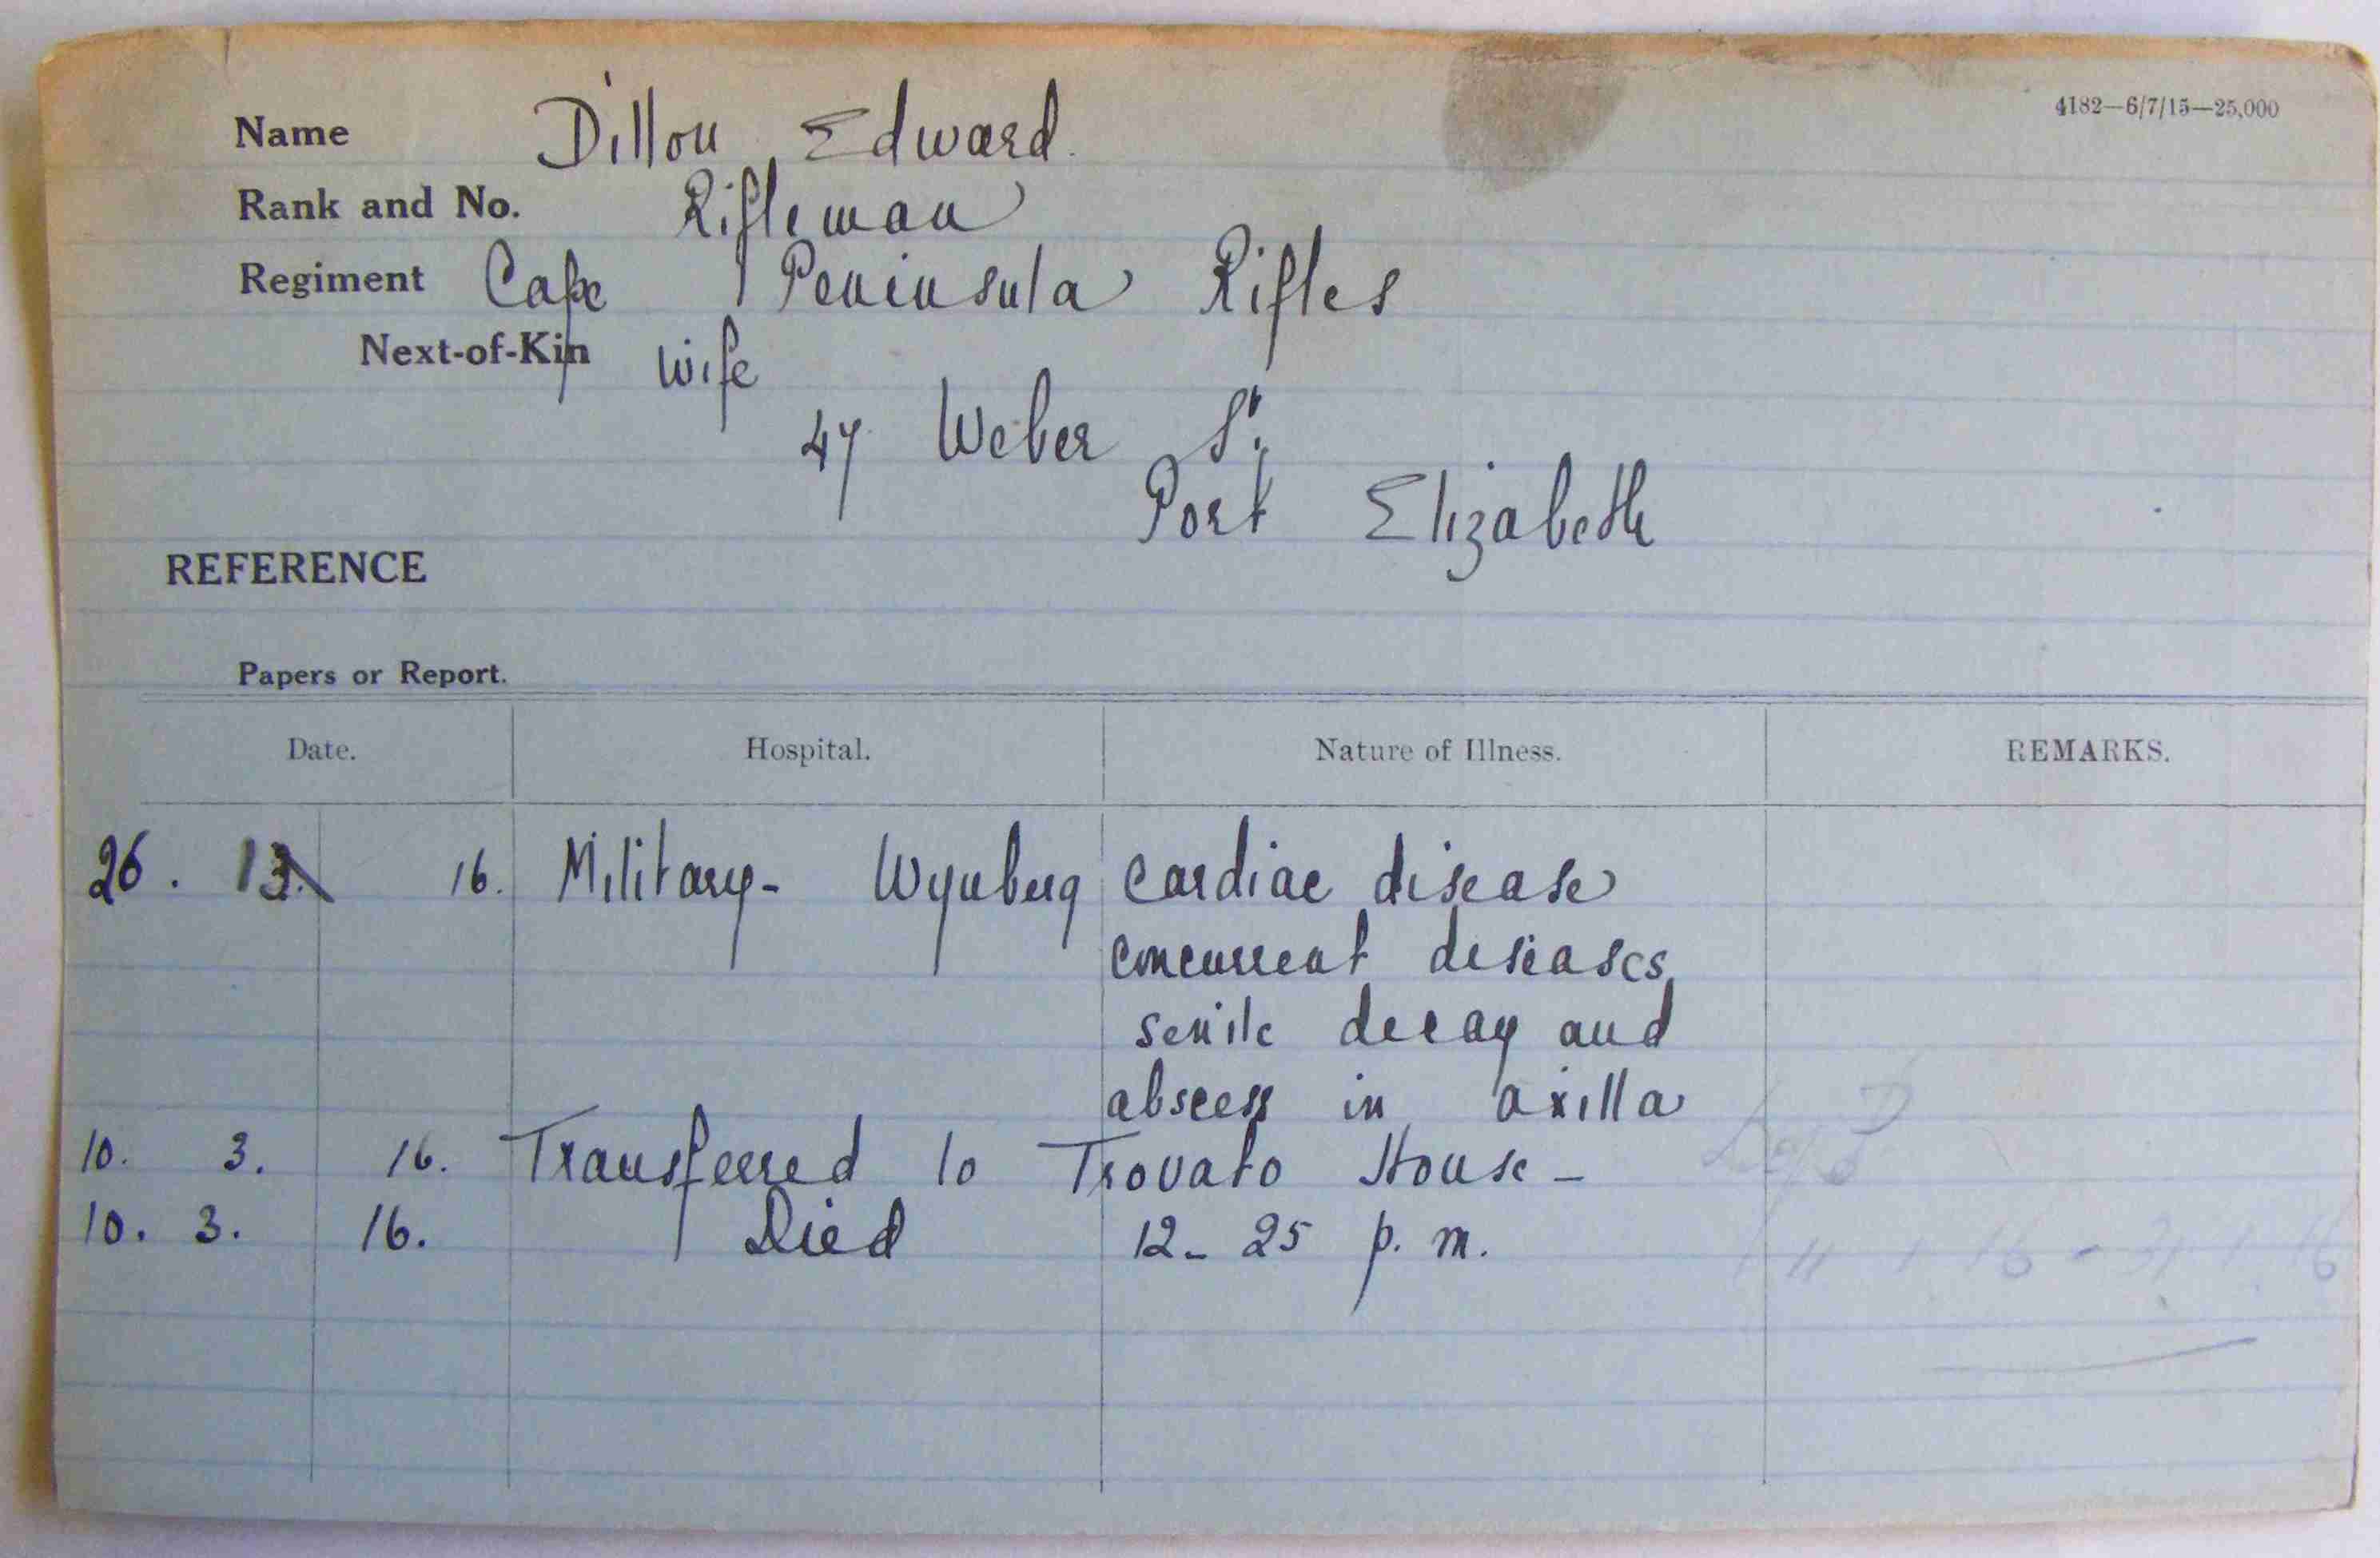 4182—6/7/15—25,000
Name Dillon Edward.
Rank and No. Rifleman
Regiment Cape Peninsula Rifles
Next-of-Kin Wife
47 Weber St.
Port Elizabeth
REFERENCE
Papers or Report.
Date. Hospital. Nature of Illness. REMARKS.
26. 16. Military- Wynberg Cardiac disease
concurrent diseases
senile decay and
abscess in axilla
10. 3. 16. Transferred to Trovato House -
10. 3. 16. Died 12-25 p.m.